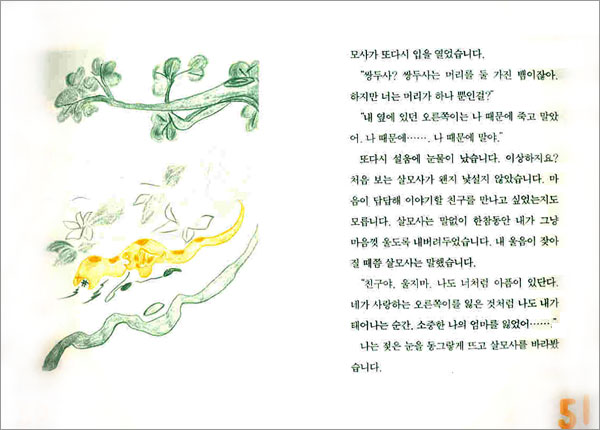 모사가 또다시 입을 열었습니다.
"쌍두사? 쌍두사는 머리를 둘 가진 뱀이잖아.
하지만 너는 머리가 하나 뿐인걸?"
"내 옆에 있던 오른쪽이는 나 때문에 죽고 말았
어. 나 때문에……. 나 때문에 말야."
또다시 설움에 눈물이 났습니다. 이상하지요?
처음 보는 살모사가 왠지 낯설지 않았습니다. 마
음이 답답해 이야기할 친구를 만나고 싶었는지도
모릅니다. 살모사는 말없이 한참동안 내가 그냥
마음껏 울도록 내버려두었습니다. 내 울음이 잦아
질 때쯤 살모사는 말했습니다.
"친구야, 울지마. 나도 너처럼 아픔이 있단다.
네가 사랑하는 오른쪽이를 잃은 것처럼 나도 내가
태어나는 순간, 소중한 나의 엄마를 잃었어……."
나는 젖은 눈을 동그랗게 뜨고 살모사를 바라봤
습니다.
51